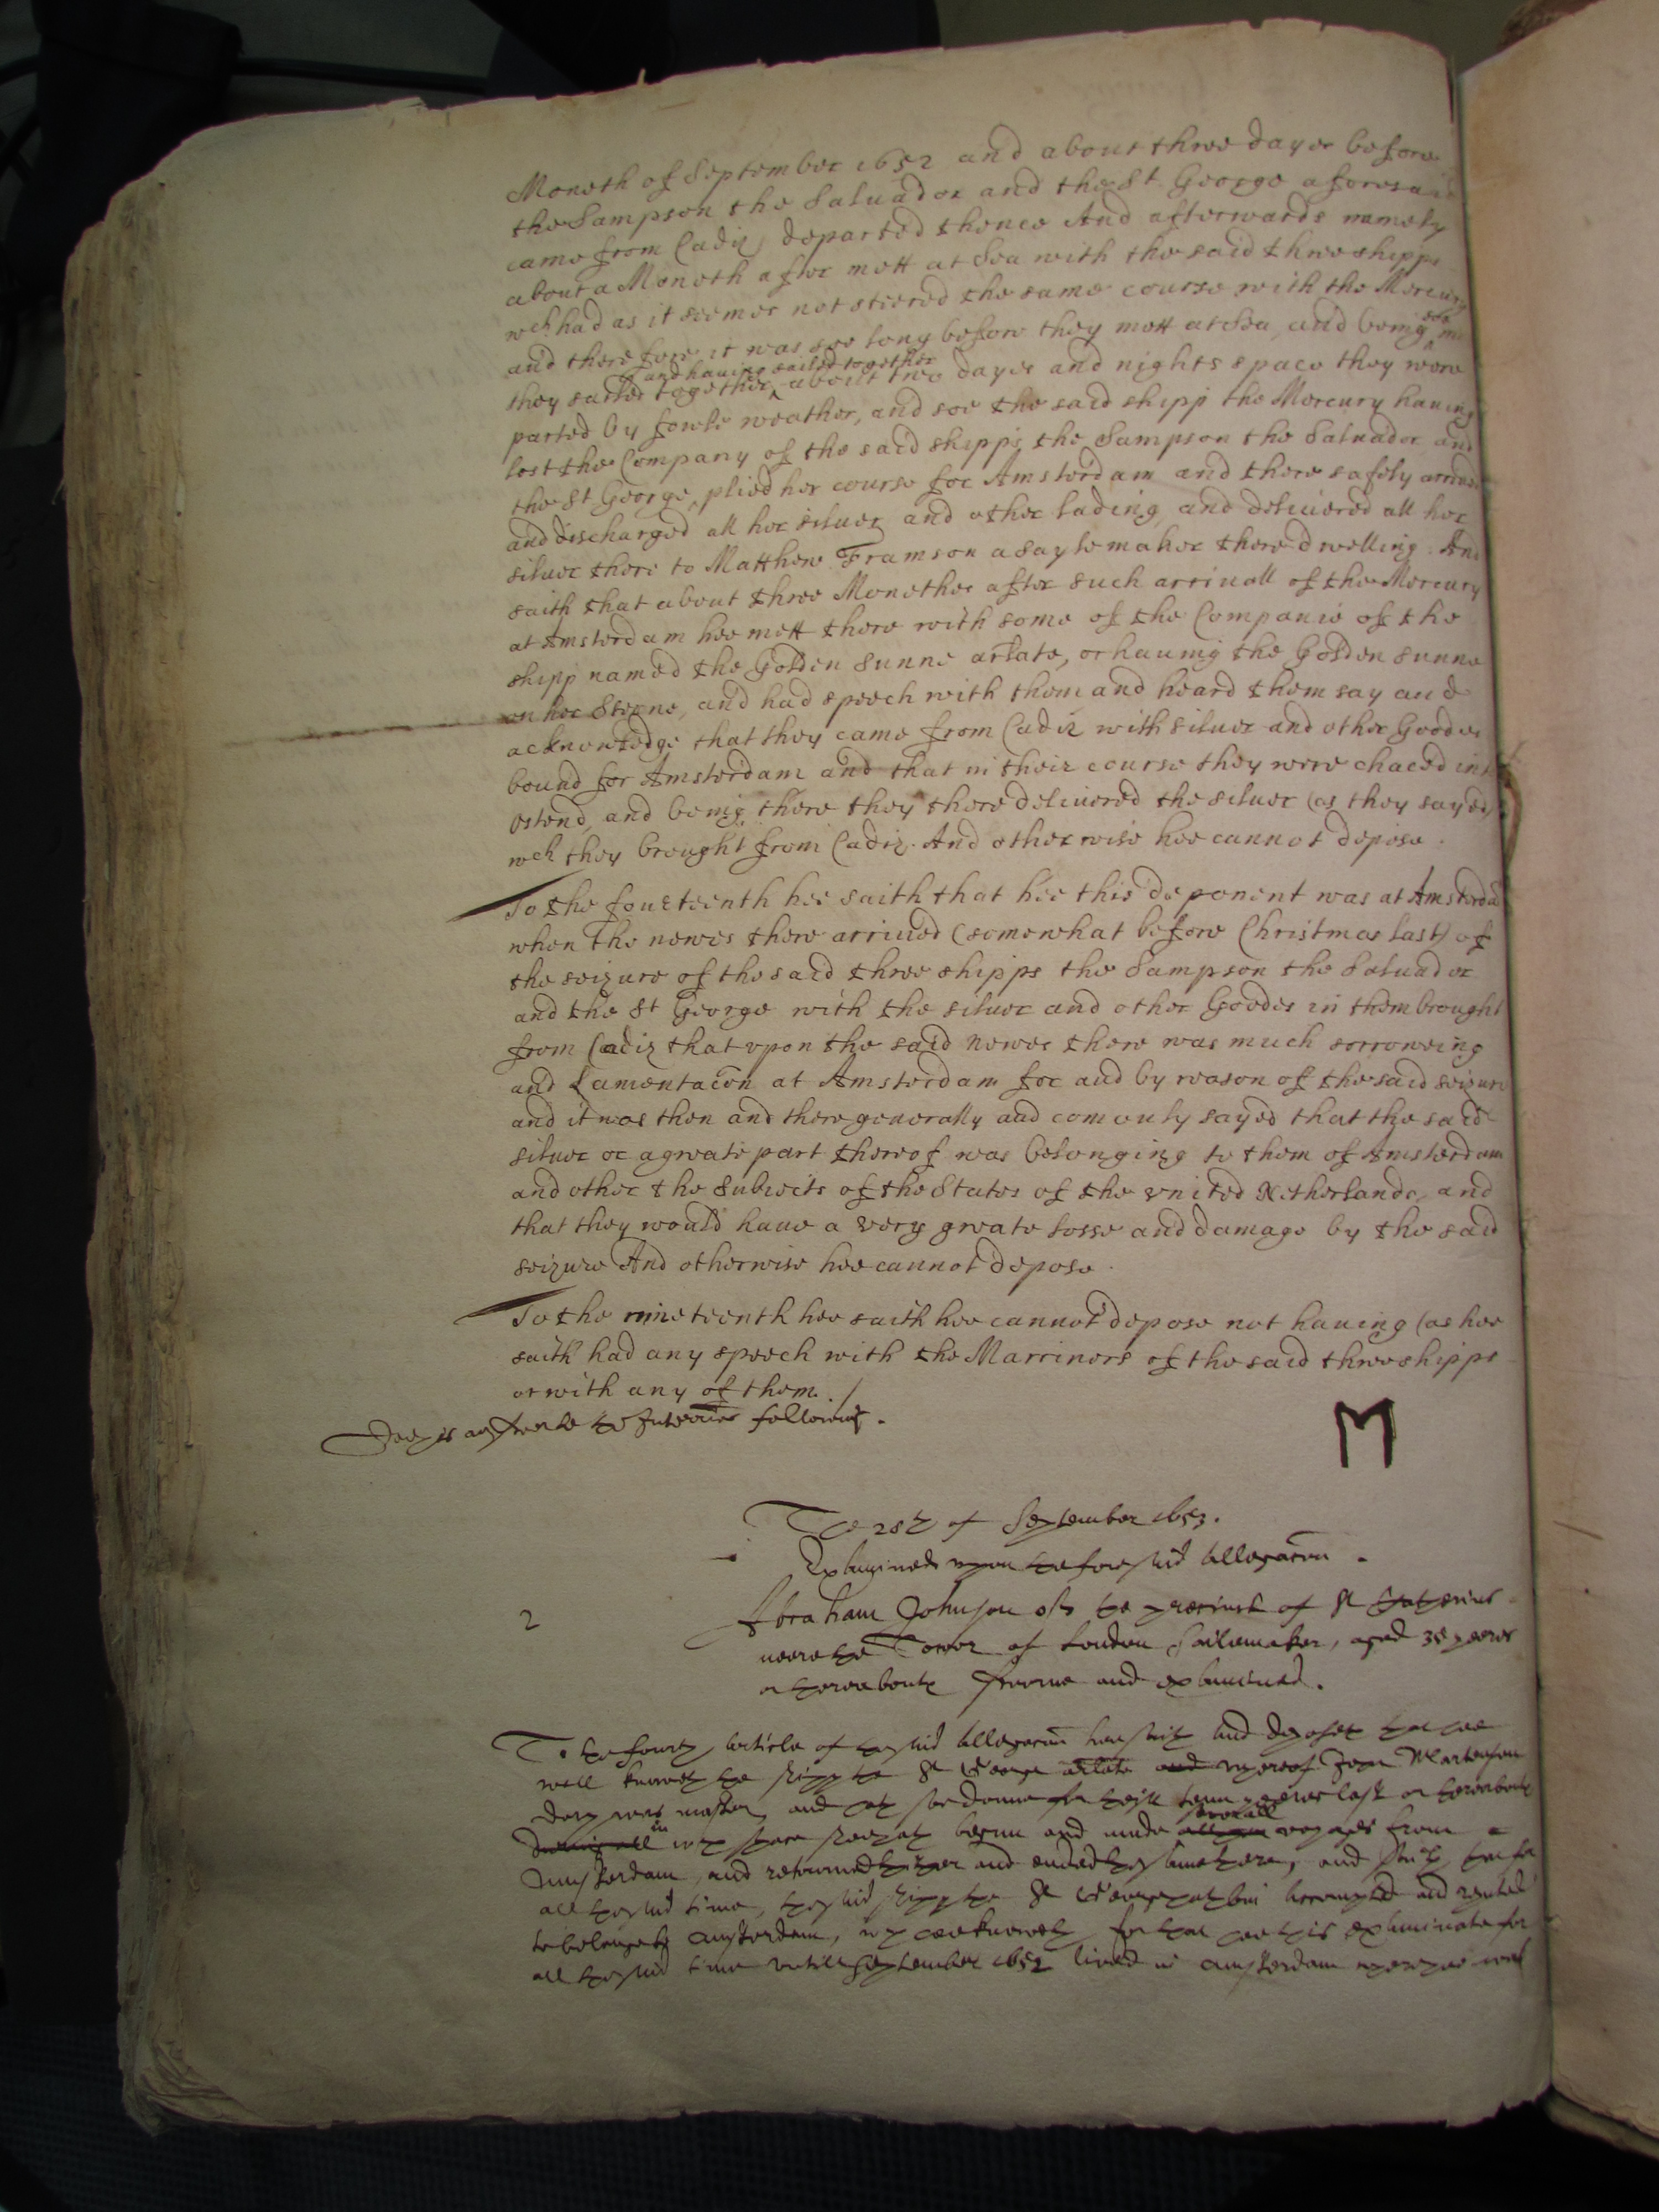 Moneth of September 1652 and about three dayes before
the Sampson the Saluador and the St. George aforesaid
came from Cadiz, departed thence And afterwards namely
about a Moneth after mett at Sea with the said three shipps
wch had as it seemes not steered the same course with the Mercury
and therefore it was soe long before they mett at Sea, and being soe
they sailed together and hauing sailed together about two dayes and nights space they were
parted by fowle weather, and soe the said shipp the Mercury hauing
lost the Company of the said shipps the Sampson the Saluador and
the St George, plied her course for Amsterdam and there safely arriued
and discharged all her siluer and other lading, and deliuered all her
siluer there to Matthew Framson a Sayle maker there dwelling. And
saith that about three Monethes after such arriuall of the Mercury
at Amsterdam hee mett there with some of the Companie of the
shipp named the Golden Sunne arlate, or hauing the Golden Sunne
on her Sterne, and had speech with them and heard them say and
acknowledge that they came from Cadiz with siluer and other Goodes
bound for Amsterdam and that in their course they were chaced into
Ostend, and being there they there deliuered the siluer (as they sayed)
wch they brought from Cadiz. And otherwise hee cannot depose.
To the fourteenth hee saith that hee this deponent was at Amsterdam
when the newes there arriued (somewhat before Christmas last) of
the seizure of the said three shipps the Sampson the Saluador
and the St George with the siluer and other Goodes in them brought
from Cadiz that vpon the said newes there was much sorroweing
and Lamentacon at Amsterdam for and by reason of the said seizure
and it was then and there generally and comonly sayed that the said
siluer or a greate part thereof was belonging to them of Amsterdam
and other the Subiects of the States of the vnited Netherlands, and
that they would haue a very greate losse and damage by the said
seizure And otherwise hee cannot depose.
To the nineteenth hee saith hee cannot depose not hauing (as hee
saith had any speech with the Marriners of the said three shipps
or with any of them./
to the Interries following.
M
The 28th of September 1653.
Examined upon the foresaid allegacon.
2
Abraham Johnson of the precinct of St Katherins
neere the Tower of London Sailemaker, aged 35 yeeres
or thereabouts sworne and examined.
To the fourth article of the said allegacon hee saith and deposeth that hee
well knoweth the shipp the St George arlate and whereof John Martenson
was master, and hath soe donne for theise tenn yeeres last or thereabouts
in wch space shee hath begun and made seuerall voyages from
Amsterdam, and returned thither and ended the same there, and saith that for
all the said time, the said shipp the St George hath bin accompted and reputed
to belonge to Amsterdam, wch hee knoweth for that hee this examinate for
all the said time vntill September 1652 lived in Amsterdam where hee was